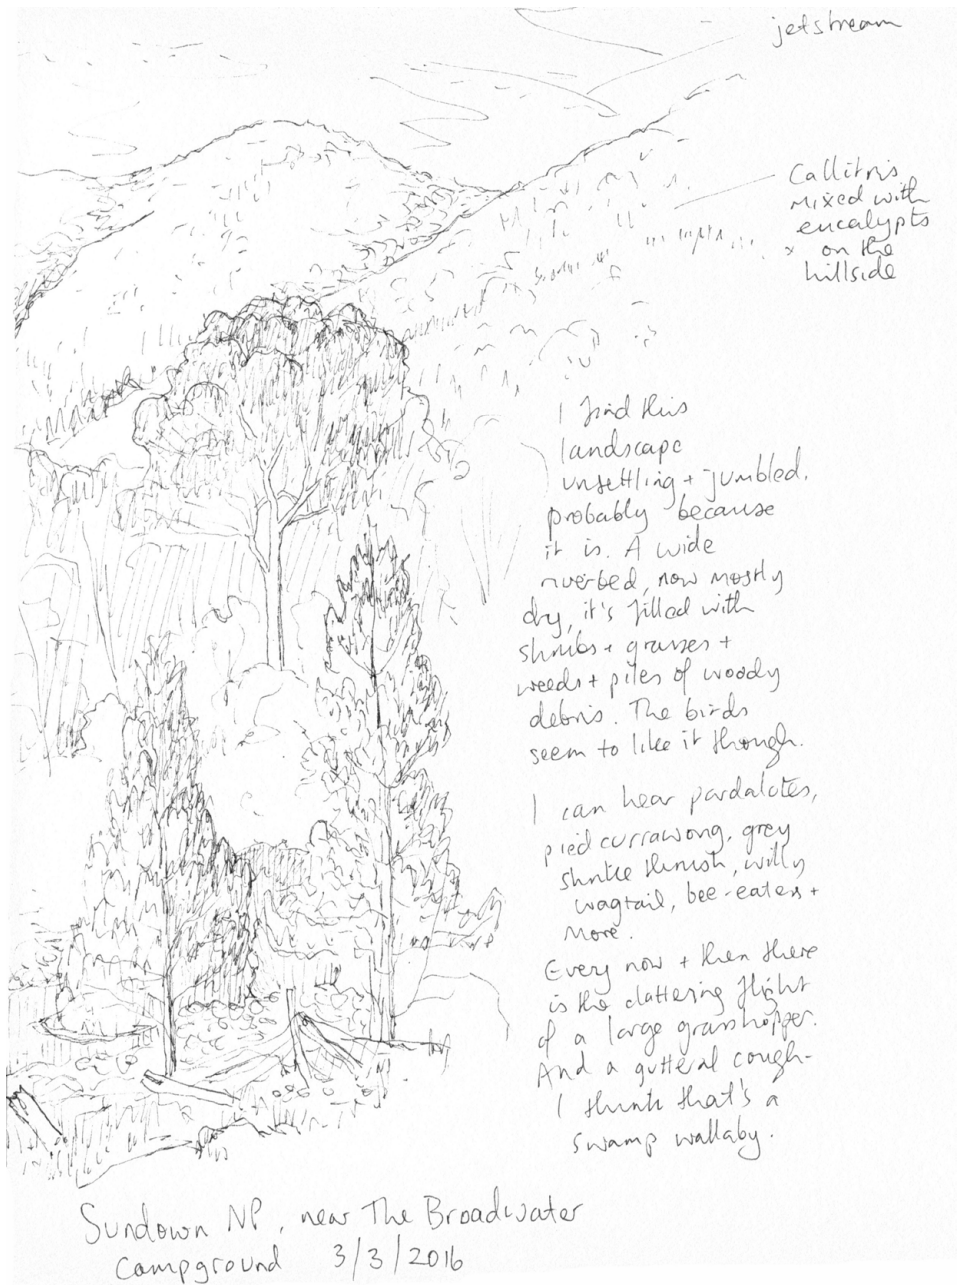 jetstream
Callitris
mixed with
eucalypts
x on the
hillside
I find this
landscape
unsettling + jumbled,
probably because
it is. A wide
riverbed, now mostly
dry, it's filled with
shrubs + grasses +
weeds + piles of woody
debris. The birds
seem to like it though.
I can hear pardalotes,
pied currawong, grey
shrike thrush, willy
wagtail, bee-eaters +
more.
Every now + then there
is the clattering flight
of a large grasshopper.
And a gutteral cough -
I think that's a
swamp wallaby.
Sundown NP, near The Broadwater
campground 3/3/2016